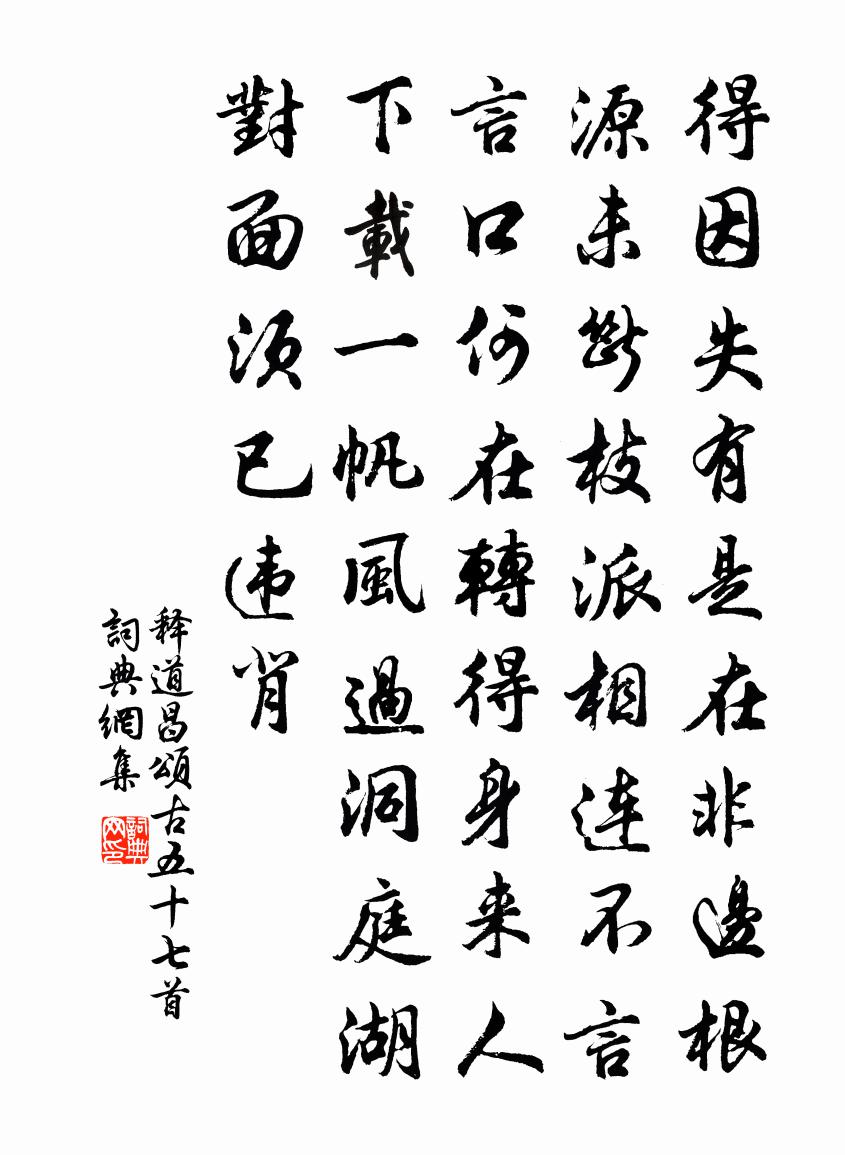 得因失有是在非邊根
源未斷枝派相連不言
言口何在轉得身来人
下載一帆風過洞庭湖
對面須已违背
释道昌頌古五十七首
詞典網集
詞典网印